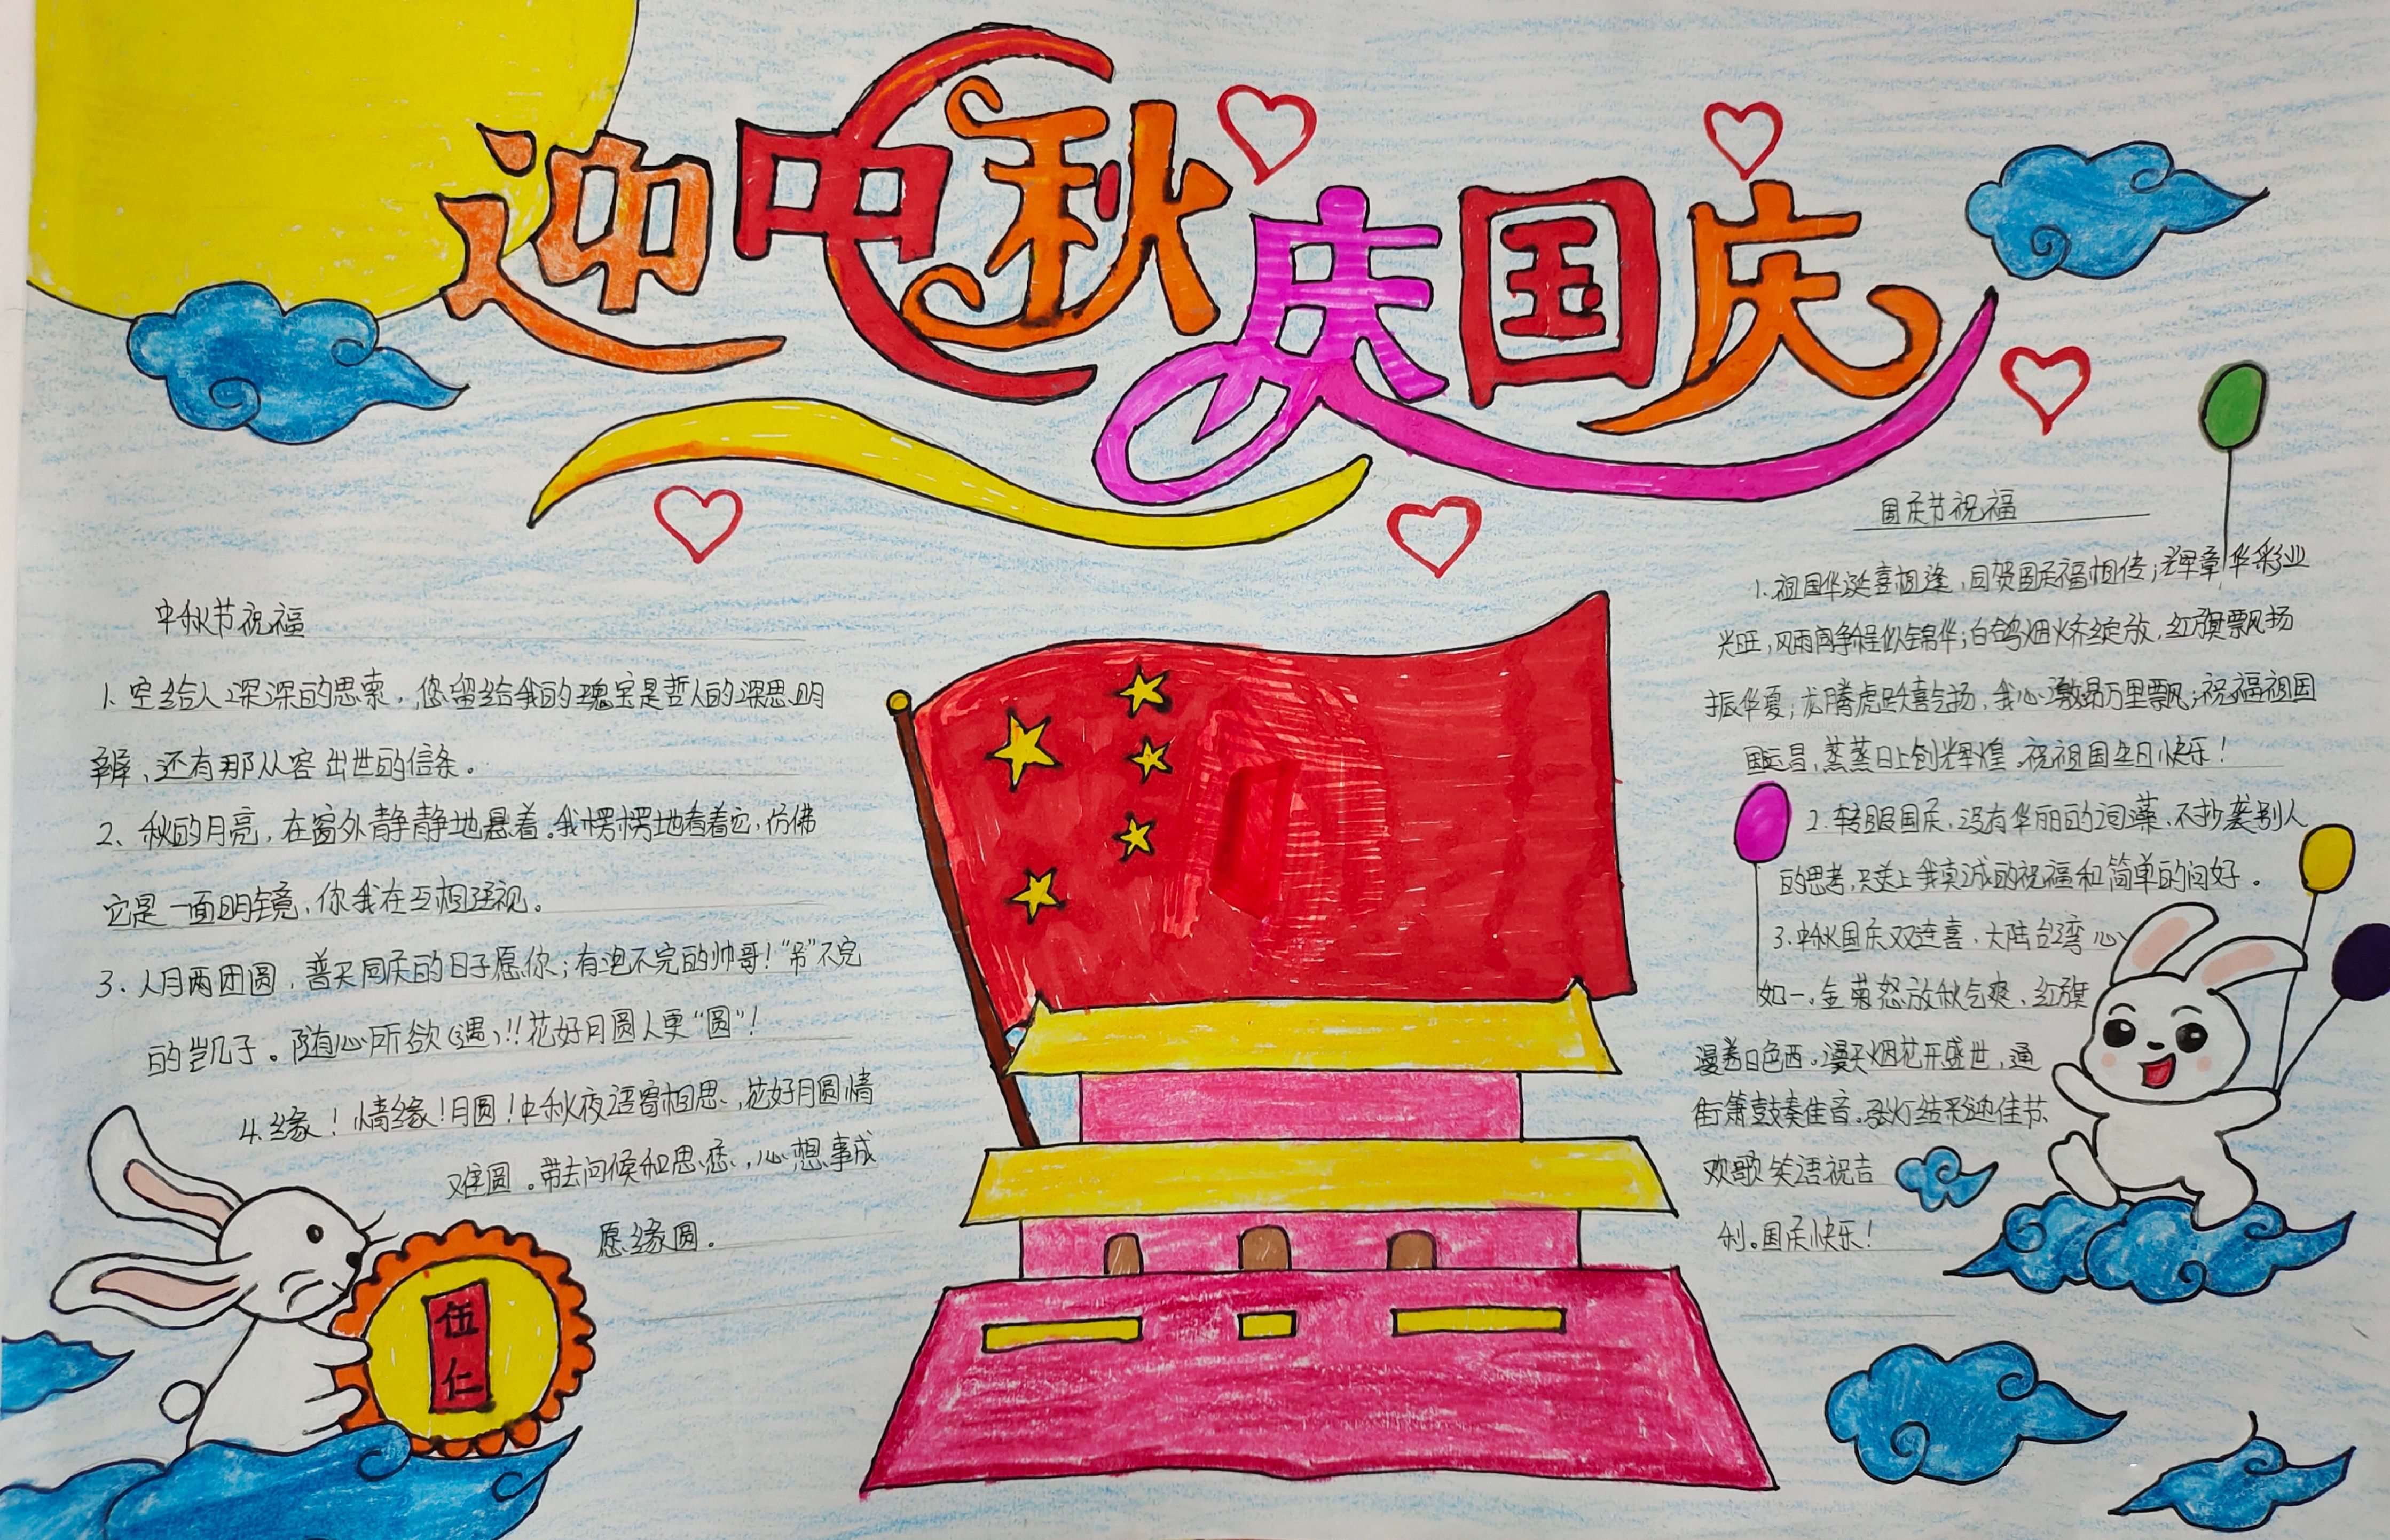 迎中秋庆国庆
中秋节祝福
1、空给人深深的思索，您留给我的瑰宝是哲人的深思、明
辨、还有那从容出世的信条。
2、秋的月亮，在窗外静静地悬着。我愣愣地看着它，仿佛
它是一面明镜，你我在互相逐视。
3、人月两团圆，普天同庆的日子愿你；有泡不完的帅哥！“吊”不完
的凯子。随心所欲（遇）！！花好月圆人更“圆”！
4、缘！情缘！月圆！中秋夜语寄相思，花好月圆情
难圆。带去问候和思悉，心想事成
愿缘圆。
伍
仁
国庆节祝福
1、祖国华诞喜相逢，同贺国庆福相传；辉章华彩业
兴旺，风雨阔争程似锦华；白鸽烟火娇绽放，红旗飘扬
振华夏；龙腾虎跃喜气扬，我心激昂万里飘；祝福祖国
国运昌，蒸蒸日上创辉煌。祝祖国生日快乐！
2、转眼国庆，没有华丽的词藻，不抄袭别人
的思考，只送上我真诚的祝福和简单的问好。
3、中秋国庆双连喜，大陆台湾心
如一，金菊怒放秋气爽，红旗
漫卷日色西。漫天烟花开盛世，通
街箫鼓奏佳音。张灯结彩迎佳节
欢歌笑语祝吉
利。国庆快乐！